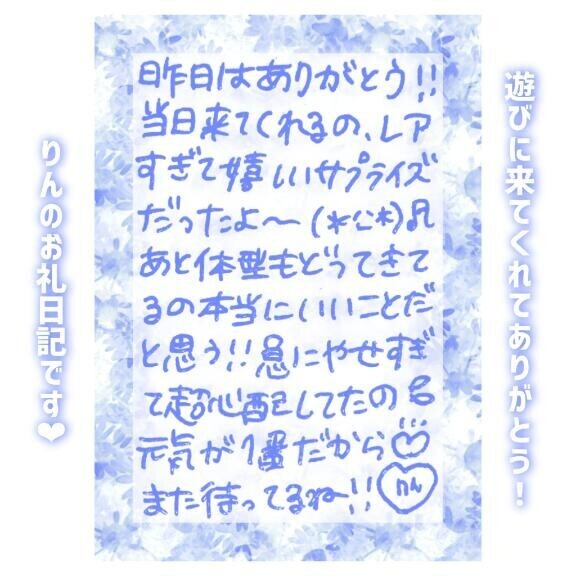 遊びに来てくれてありがとう！
昨日はありがとう!!
当日来てくれるの、レア
すぎて嬉しいサプライズ
だったよ～(*^^*)♬
あと体型もどってきて
るの本当にいいことだ
と思う!!急にやせすぎ
て超心配してたの
元気が1番だから
また待ってるね!!
りん
りんのお礼日記です❤